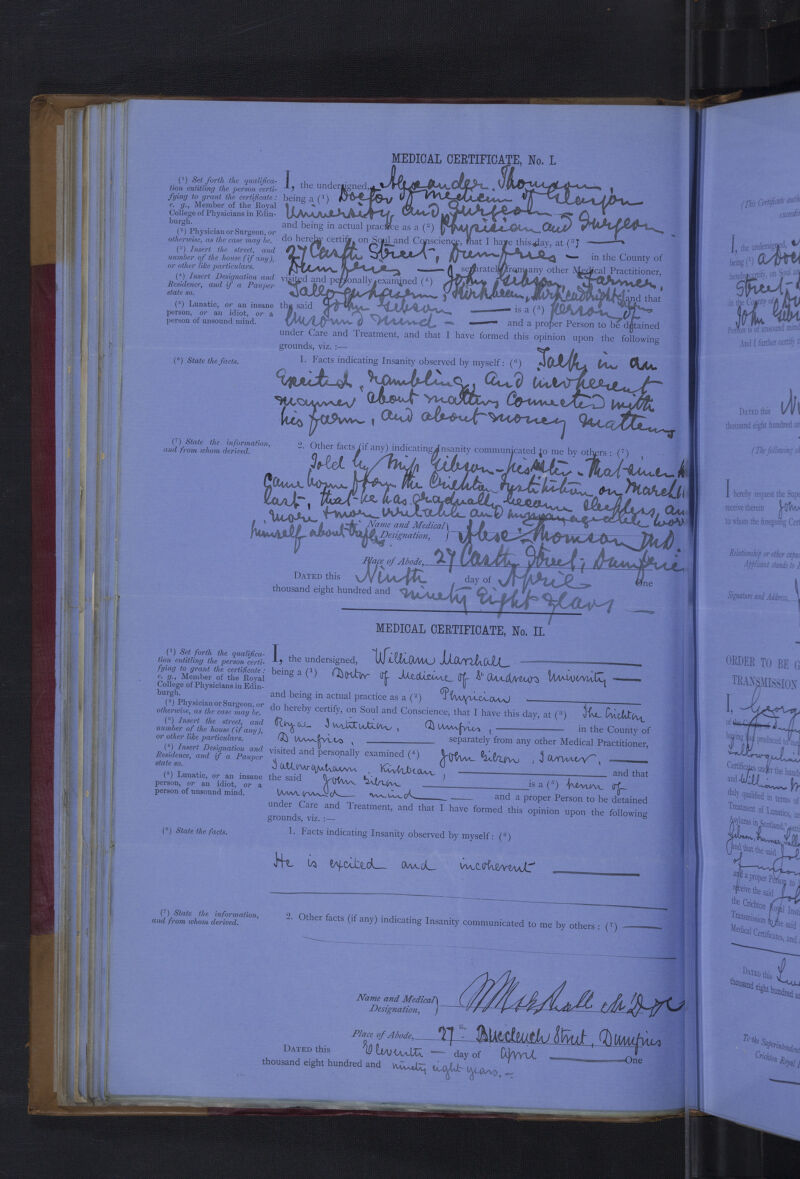 MEDICAL CERTIFICATE, No. I.
(¹) Set forth the qualifica-
tion entitling the person certi-
fying to grant the certificate:
e. g., Member of the Royal
College of Physicians in Edin-
burgh.
(²) Physician or Surgeon, or
otherwise, as the case may be.
(³) Insert the street, and
number of the house (if any),
or other like particulars.
(⁴) Insert Designation and
Residence, and if a Pauper
state so.
(⁵) Lunatic, or an insane
person, or an idiot, or a
person of unsound mind.
I, the undersigned, Alexander Thomson,
being a (¹) Doctor of Medicine of Glasgow
University and Surgeon
and being in actual practice as a (²) Physician and Surgeon
do hereby certify, on Soul and Conscience, that I have this day, at (³)
27 Castle Street, Dumfries in the County of
Dumfries separately from any other Medical Practitioner,
visited and personally examined (⁴) John Gibson, Farmer,
Kirkbean, and that
the said John Gibson is a (⁵) Person of
Unsound Mind and a proper Person to be detained
under Care and Treatment, and that I have formed this opinion upon the following
grounds, viz. :—
(⁶) State the facts.
1. Facts indicating Insanity observed by myself: (⁶) Talks in an
Excited, rambling, and incoherent
manner about matters connected with
his farm, and about money matters
(⁷) State the information,
and from whom derived.
2. Other facts (if any) indicating Insanity communicated to me by others: (⁷)
Told by Miss Gibson - his sister - that since he
came home from the Crichton Institution on March
last, that he has gradually become sleepless, an
more & more irritable and unmanageable
himself about trifles
Name and Medical
Designation,
Alexr Thomson MD
Place of Abode, 27 Castle Street, Dumfries
DATED this Ninth day of April One
thousand eight hundred and ninety Eight years
MEDICAL CERTIFICATE, No. II.
(¹) Set forth the qualifica-
tion entitling the person certi-
fying to grant the certificate:
e. g., Member of the Royal
College of Physicians in Edin-
burgh.
(²) Physician or Surgeon, or
otherwise, as the case may be.
(³) Insert the street, and
number of the house (if any),
or other like particulars.
(⁴) Insert Designation and
Residence, and if a Pauper
state so.
(⁵) Lunatic, or an insane
person, or an idiot, or a
person of unsound mind.
I, the undersigned, William Marshall
being a (¹) Doctor of Medicine of St Andrews University
and being in actual practice as a (²) Physician
do hereby certify, on Soul and Conscience, that I have this day, at (³) The Crichton
Royal Institution, Dumfries, in the County of
Dumfries, separately from any other Medical Practitioner,
visited and personally examined (⁴) John Gibson, Farmer,
Kirkbean and that
the said John Gibson is a (⁵) person of
unsound mind and a proper Person to be detained
under Care and Treatment, and that I have formed this opinion upon the following
grounds, viz. :—
(⁶) State the facts.
1. Facts indicating Insanity observed by myself: (⁶)
He is excited and incoherent
(⁷) State the information,
and from whom derived.
2. Other facts (if any) indicating Insanity communicated to me by others: (⁷)
Name and Medical
Designation,
Marshall
Place of Abode, 27 Buccleuch Street, Dumfries
DATED this Eleventh day of April One
thousand eight hundred and ninety eight years.
I, the undersigned,
being (¹) a Doct
Street
John
DATED this
thousand eight hundred an
I hereby request the Sup
receive therein John
to whom the foregoing Cer
Relationship or other
Applicant stands to
Signature and Address,
ORDER TO BE G
TRANSMISSION
I, George
and William
duly qualified in terms of
Treatment of Lunatics,
Asylums in Scotland,
and that the said
and a proper Person to
receive the said
the Crichton Royal Inst
Transmission to the said
Medical Certificates, and
DATED this
thousand eight hundred a
To the Superintendent
Crichton Royal I